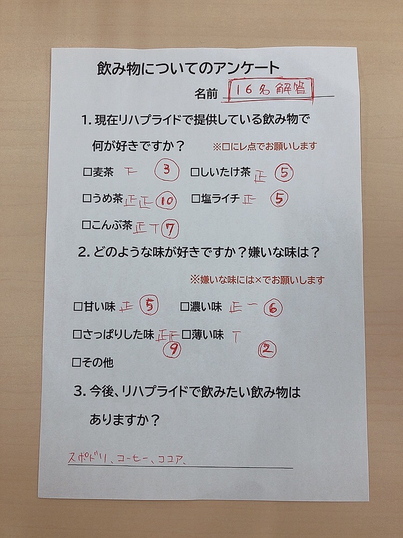 飲み物についてのアンケート
名前 16名解答
1. 現在リハプライドで提供している飲み物で
何が好きですか? ※□にレ点でお願いします
□麦茶 下 ③ □しいたけ茶 正 ⑤
□うめ茶 正正 ⑩ □塩ライチ 正 ⑤
□こんぶ茶 正丅 ⑦
2. どのような味が好きですか?嫌いな味は?
※嫌いな味には×でお願いします
□甘い味 正 ⑤ □濃い味 正一 ⑥
□さっぱりした味 正 □薄い味 丅
⑨ ②
□その他
3. 今後、リハプライドで飲みたい飲み物は
ありますか?
スポドリ、コーヒー、ココア、